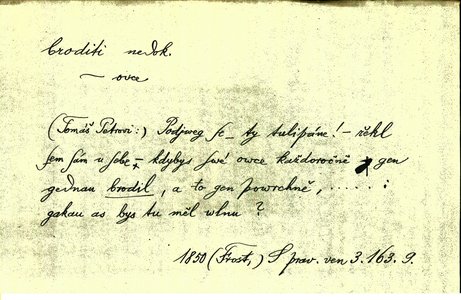 broditi nedok.
~ ovce
(Tomáš Petrovi:) Podjweg se_ ty tulipáne! – řekl
sem sán u sebe – kdybys swé owce každoročně gen
gednau brodil, a to gen powrchně, . . . . . :
gakau as bys tu měl wlnu?
1850 (Frost,) Sprav. ven 3. 163. 9.